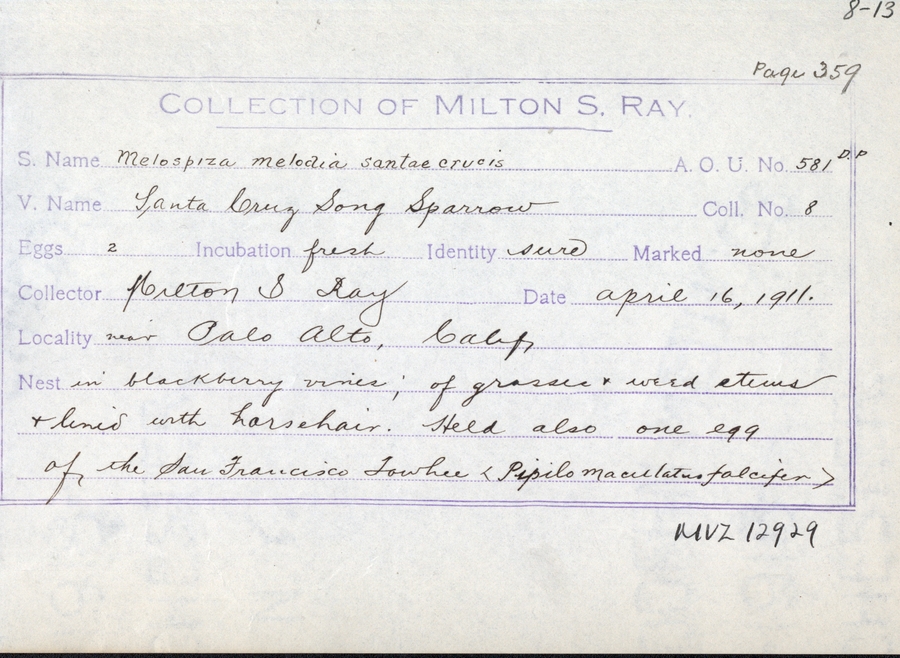 8-13
Page 359
COLLECTION OF MILTON S. RAY.
S. Name Melospiza melodia santaecrucis A. O. U. No. 581 D.P
V. Name Santa Cruz Song Sparrow Coll. No. 8
Eggs 2 Incubation fresh Identity sure Marked none
Collector Milton S Ray Date april 16, 1911.
Locality near Palo Alto, Calif,
Nest in blackberry vines; of grasses + weed stems
+ lined with horsehair. Held also one egg
of the San Francisco Towhee <Pipilo maculatus falcifer>
MVZ 12929